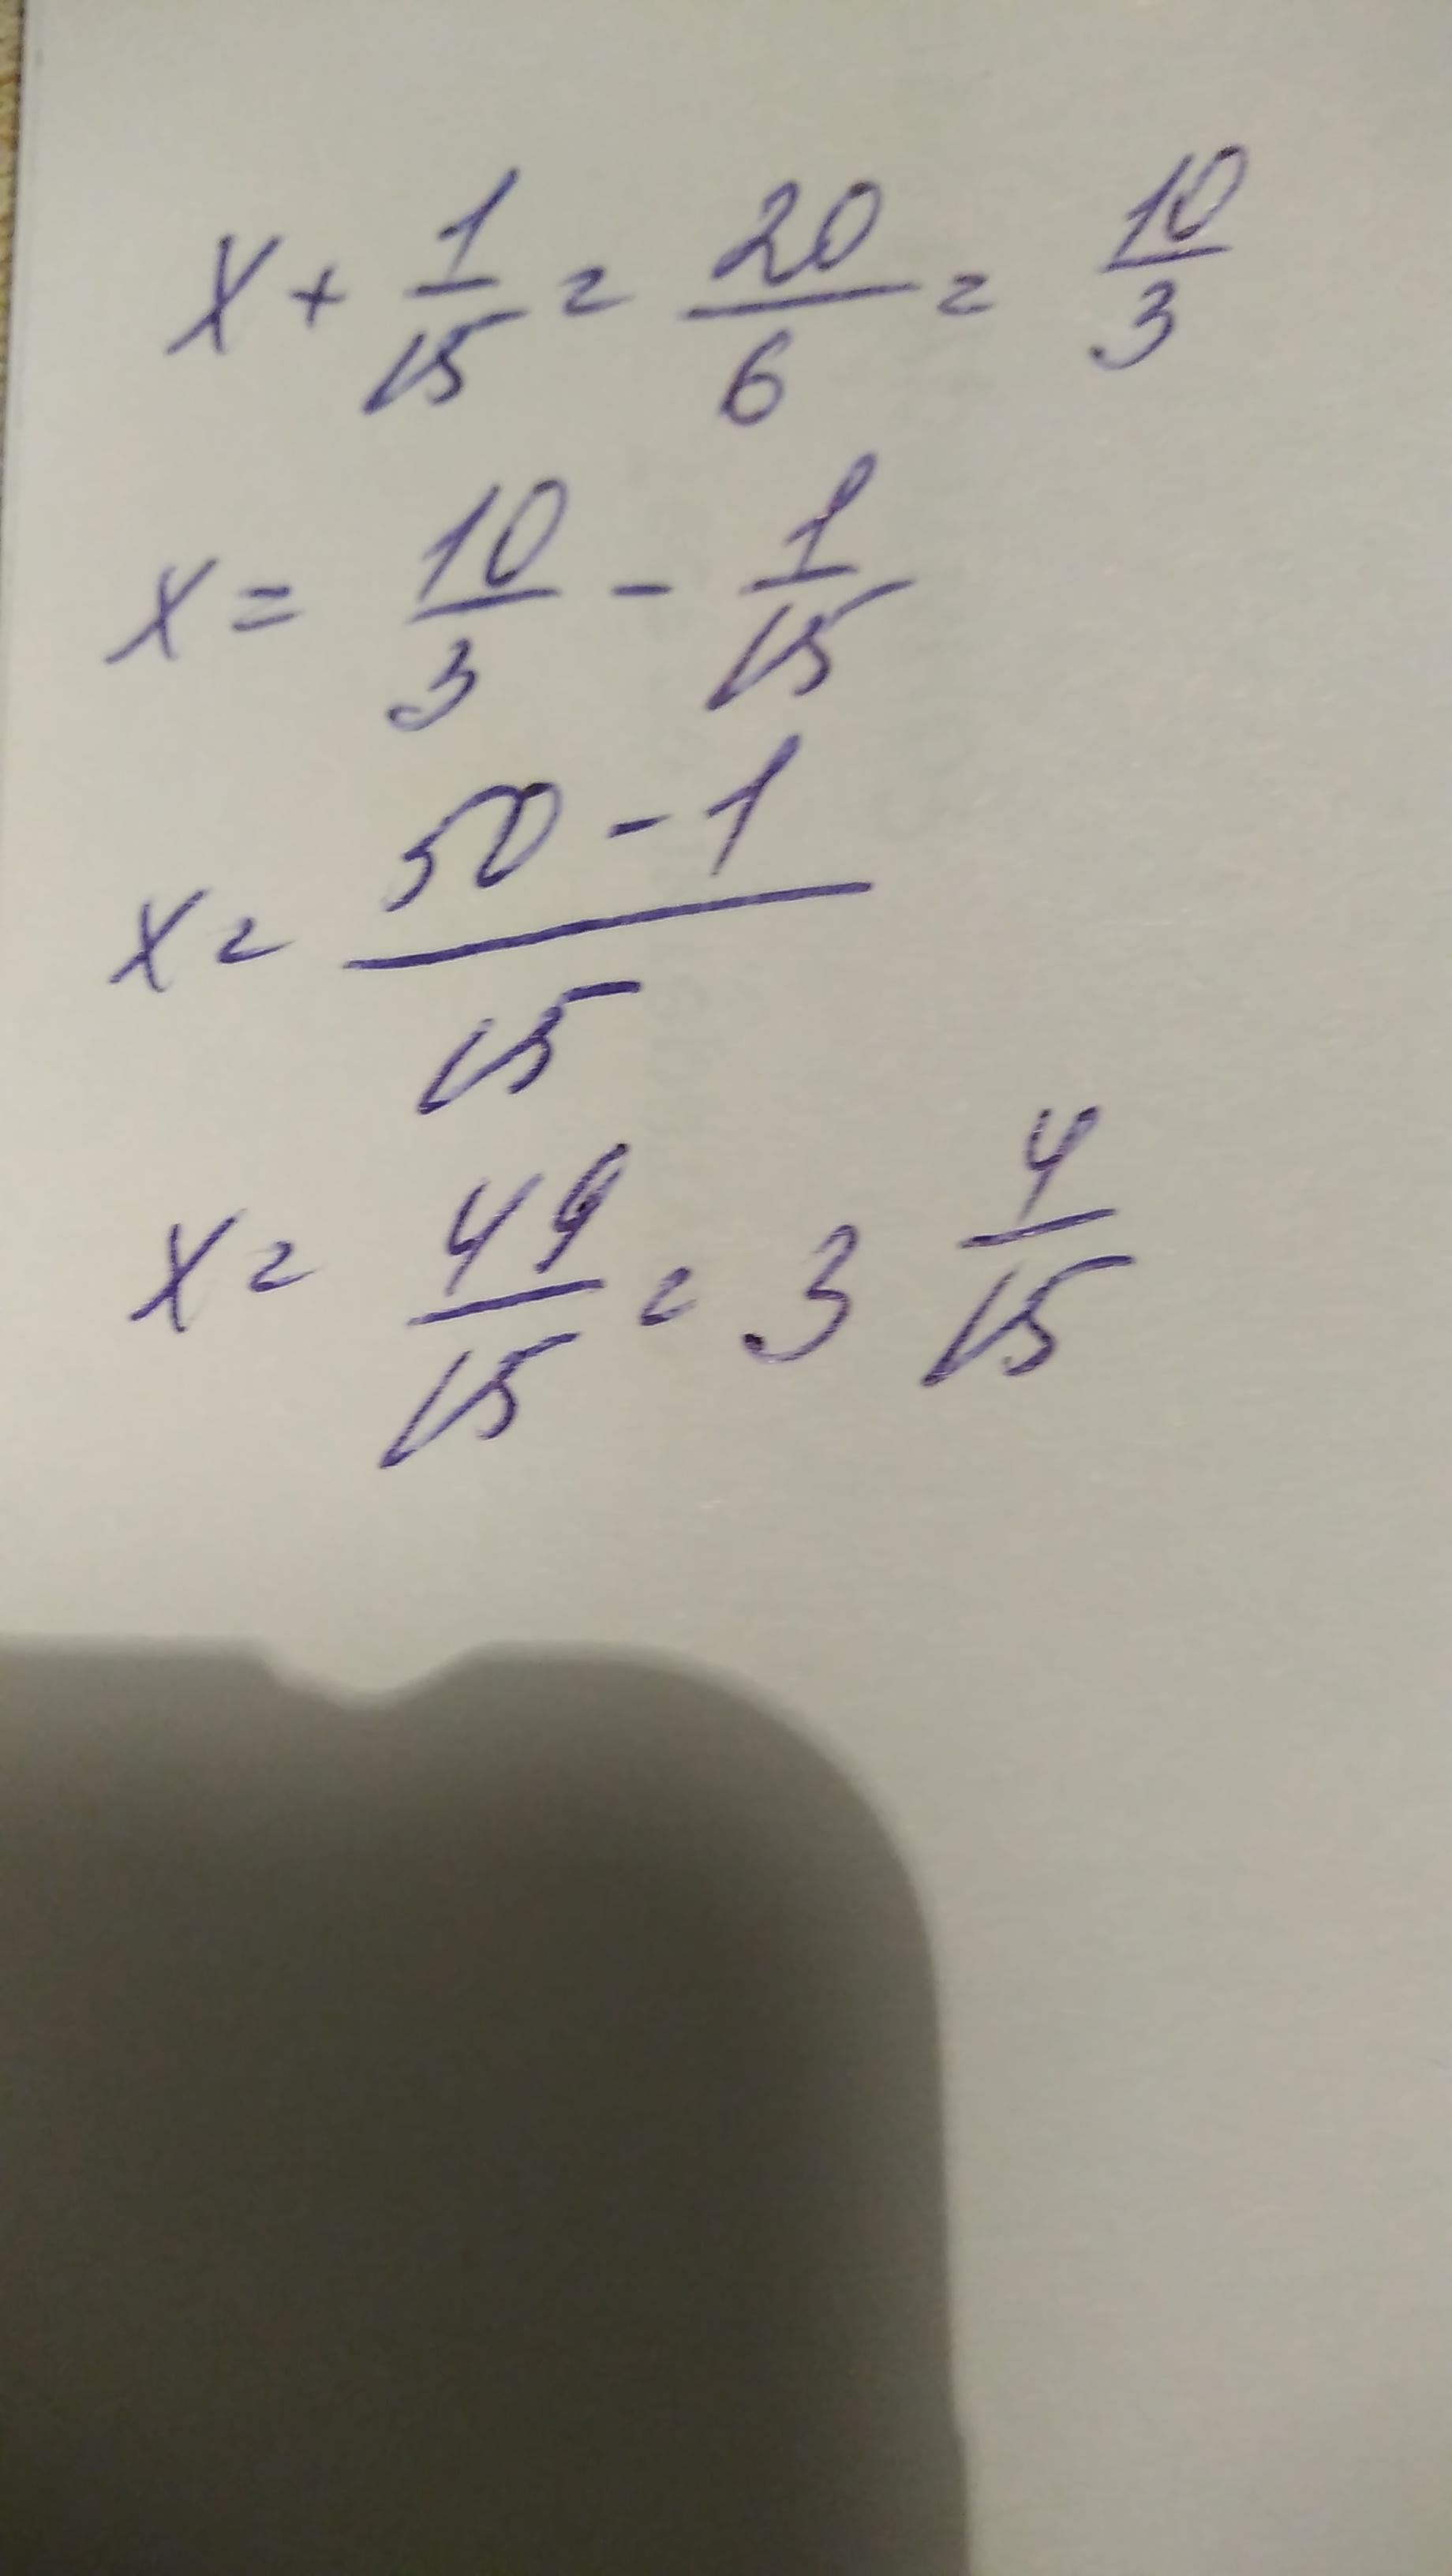 x + 1/15 = 20/6 = 10/3
x = 10/3 - 1/15
x = (50 - 1)/15
x = 49/15 = 3 4/15